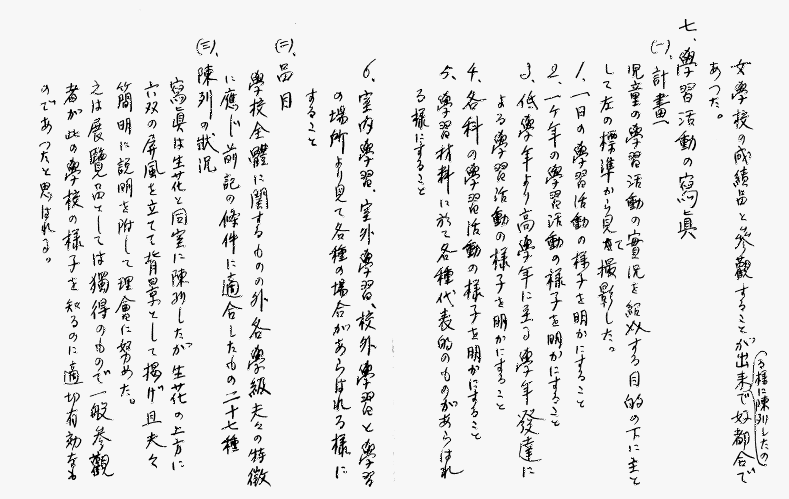 る様に陳列したの
女學校の成績品と参觀することが出来て好都合で
あつた。
七、學習活動の寫真
(一)、計畫
児童の學習活動の實況を紹介する目的の下に主と
して左の標準から見て撮影した。
1、一日の學習活動の様子を明かにすること
2、一ヶ年の學習活動の様子を明かにすること
3、低學年より高學年に至る學年發達に
よる學習活動の様子を明かにすること
4、各科の學習活動の様子を明かにすること
5、學習材料に於て各種代表的のものがあらはれ
る様にすること
6、室内學習、室外學習、校外學習と學習
の場所より見て各種の場合があらはれる様に
すること
(二)、品目
學校全體に關するものの外各學級夫々の特徴
に應じ前記の條件に適合したもの二十七種
(三)、陳列の狀況
寫真は生花と同室に陳列したが生花の上方に
六双の屏風を立てて背景として掲げ且夫々
簡明に説明を附して理會に努めた。
之は展覽品としては獨得のもので一般参觀
者が此の學校の様子を知るのに適切有効なも
のであつたと思はれる。